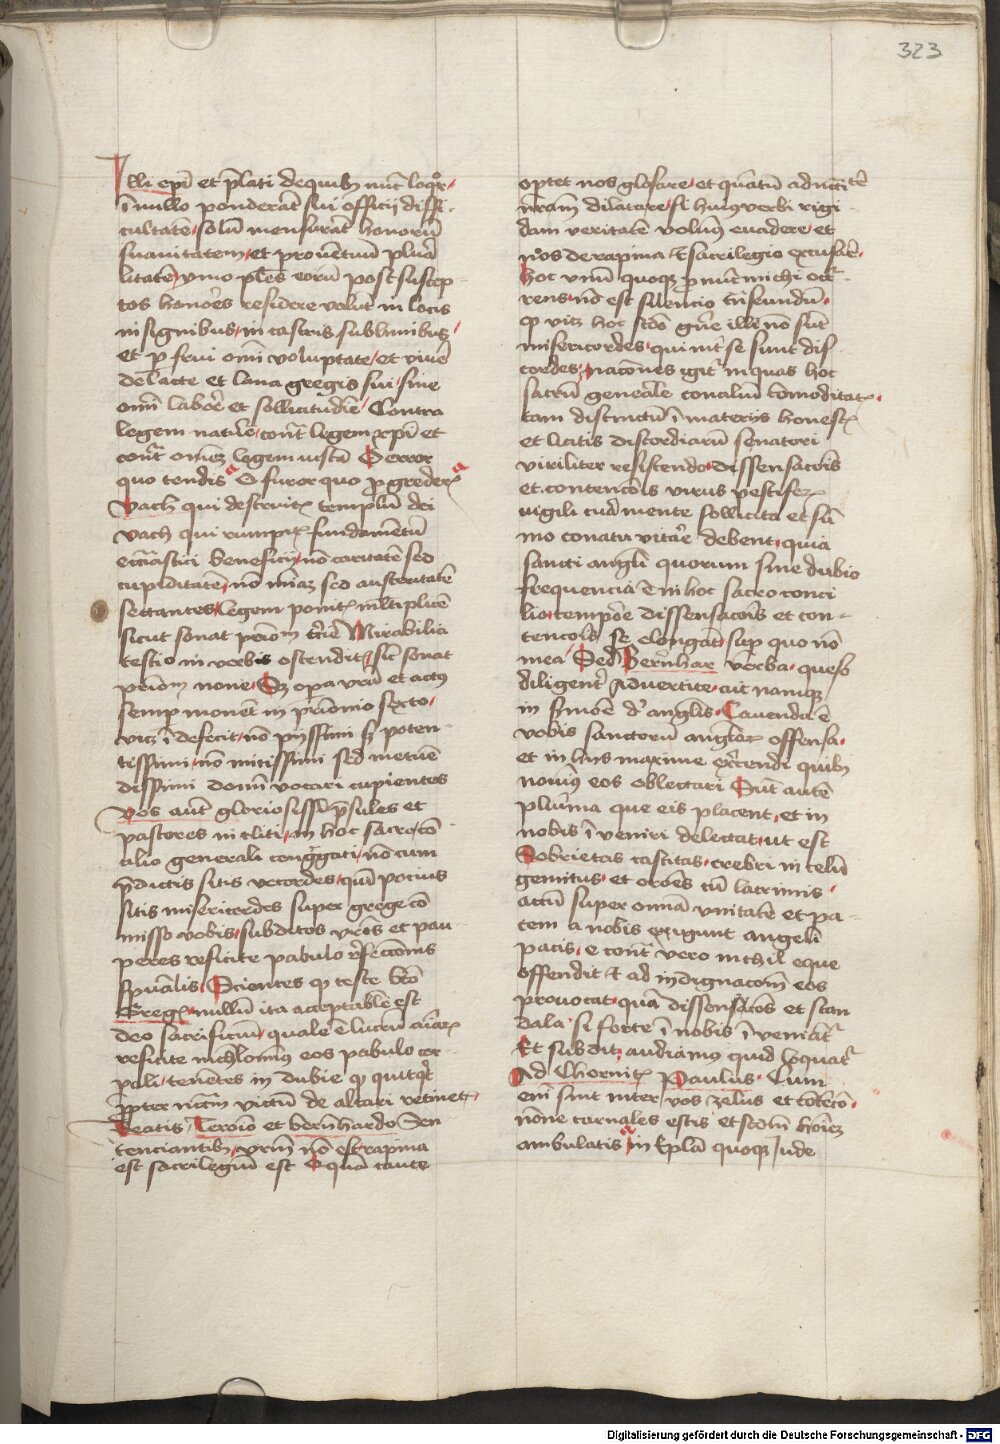 323
Illi epi̅ et p̅lati de quib nu̅c loq̅r
i̅ nullo pondera̅t sui officij diffi
cultate̅ solu̅ mensura̅t honoru̅
suauitatem et prouentuu̅ plura̅
litate̅ ymo ples eoru̅ post suscep
tos honores residere volu̅t in locis
insignibus in castris sublimibus
et p frui omi̅ voluptate et viue̅
de lacte et lana gregis sui sine
omi̅ labore̅ et sollicitudi̅e Contra
legem nature̅ cont̅ legem xpi̅ et
cont̅ omnez legem iusta̅ O error
quo tendis O furor quo p̅greder̅
Vach qui destruit̅ templu̅ dei
vach qui rumpit̅ fundame̅tu̅
eccl̅iastici beneficij no̅ caritate̅ sed
cupiditate̅ no̅ mi̅az sed austeritate̅
sectantes legem ponit̅ m̅ltiplice̅
sicut sonat p̅riom Mirabilia
testio in verbis ostendit sic̅ sonat
p̅riom none Sz opa vr̅a et actus
semp mone̅t in p̅riomio sexto
vicz i̅ defecit no̅ pijssimi sz poten
tissimi no̅ mitissimi sed metue̅
dissimi domi̅ vocari cupientes
Vos aute̅ gloriosissi̅ p̅sules et
pastores incliti in hoc sacro co̅
cilio generali cong̅gati no̅ cum
p̅dictis sitis vecordes qui̅ pocius
sitis misericordes super grege co̅
misso vobis subditos vr̅os et pau
peres reficite pabulo r̅fectionis
sp̅ualis Scientes q̅ teste b̅to
Greg̅ nullu̅ ita acceptabile est
deo sacrificiu̅ quale e̅ lucru̅ ai̅ar̅
reficite nichilomi̅9 eos pabulo cor
porali tene̅tes in dubie q̅ quitq̅t
p̅pter victu̅ de altari retinet̅
Beatis Ieroi̅o et bern̅hardo Sen
tenciantib vrm̅ no̅ est rapina
est sacrilegiu̅ est O qua̅ caute
optet nos glosare et qua̅tu̅
nr̅am dilatare si hui9 verbi rigi
dam veritate̅ volum9 euadere et
nos de rapina sacrilegio excusar̅
hoc vnu̅ quoq p̅ nu̅c michi oc̅r
rens no̅ est silencio tra̅seundu̅
q̅ vicz hoc sc̅do gn̅e ille no̅ su̅t
misericordes qui int̅ se sunt dis
cordes nac̅ones igit̅ in quas hoc
sacru̅ generale conciliu̅ co̅moditat̅
tam distinctu̅ i̅ materijs honest̅
et licitis discordiaru̅ senatori
viriliter resistendo dissensac̅ois
et contenc̅ois virus pestifer̅
vigili cura mente sollicita et su̅
mo conatu vitare̅ debent quia
sancti angl̅i quorum sine dubio
frequencia e̅ in hoc sacro conci
lio tempore̅ dissensac̅ois et con
tenc̅ois se elonga̅t sup quo no̅
mea Sed Bern̅har verba queso
diligent̅ Aduertite ait namq
in sermo̅e d̅ anglis Cauenda e̅
vobis sanctoru̅ anglor̅ offensa
et in hijs maxime ex̅cendi quib
nouim9 eos oblectari Su̅t aute̅
plur̅ima que eis placent et in
nobis i̅ veniri delectat ut est
Sobrietas castitas crebri in celu̅
gemitus et oro̅es cu̅ lacrimis
actu̅ super omnia vnitate̅ et pa
cem a nobis exigunt angeli
pacis e cont̅ vero nichil eque
offendit et ad indignacom̅ eos
prouocat qua̅ dissensac̅ois et scan
dala si forte i̅ nobis i̅ veniat̅
Et subdit audiam9 quid loquat̅
Ad Chorint̅ Paulus Cum
eni̅ sint inter vos zelus et co̅te̅co̅
no̅ne carnales estis et scdm̅ ho̅iez
ambulatis in Epl̅a quoq Iude
Digitalisierung gefördert durch die Deutsche Forschungsgemeinschaft - DFG